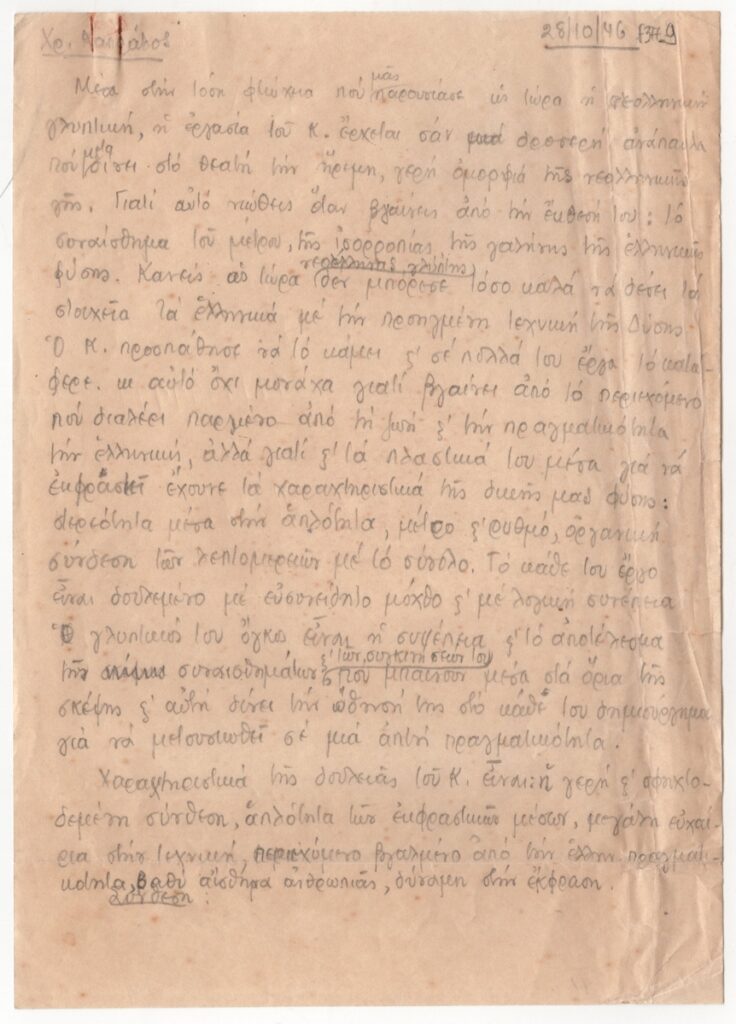 Χρ. Καπράλος
28/10/46
Μέσα στήν τόση φτώχεια πού μᾶς παρουσίασε ὡς τώρα ἡ νεοελληνική
γλυπτική, ἡ ἐργασία τοῦ Κ. ἔρχεται σάν μιά δροσερή ἀνάπαυλα
πού μετα δίνει στό θεατή τήν ἤρεμη, γερή ὀμορφιά τῆς νεοελληνικῆς
γῆς. Γιατί αὐτό νιώθεις ὅταν βγαίνεις ἀπό τήν ἔκθεσή του: τό
συναίσθημα τοῦ μέτρου, τῆς ἰσορροπίας τῆς γαλήνης τῆς ἑλληνικῆς
φύσης. Κανείς ὡς τώρα νεοέλληνας γλύπτης δέν μπόρεσε τόσο καλά νά δέσει τά
στοιχεῖα τά ἑλληνικά μέ τήν προηγμένη τεχνική τῆς Δύσης
Ὁ Κ. προσπάθησε νά τό κάμει ϗ' σέ πολλά του ἔργα τό κατά-
φερε. κι αὐτό ὄχι μονάχα γιατί βγαίνει ἀπό τό περιεχόμενο
πού διαλέγει παρμένο ἀπό τή ζωή ϗ' τήν πραγματικότητα
τήν ἑλληνική, ἀλλά γιατί ϗ' τά πλαστικά του μέσα γιά νά
ἐκφραστεῖ ἔχουνε τά χαραχτηριστικά τῆς δικῆς μας φύσης:
στερεότητα μέσα στήν ἁπλότητα, μέτρο ϗ' ρυθμό, ὀργανική
σύνδεση τῶν λεπτομερειῶν μέ τό σύνολο. Τό κάθε του ἔργο
εἶναι δουλεμένο μέ εὐσυνείδητο μόχθο ϗ' μέ λογική συνέπεια
Ὁ γλυπτικός του ὄγκος εἶναι ἡ συνέπεια ϗ' τό ἀποτέλεσμα
τῆς συναισθημάτων ϗ' τῶν συγκινήσεών του πού μπαίνουν μέσα στά ὅρια τῆς
σκέψης ϗ' αὐτή δίνει τήν ὤθησή της στό κάθε του δημιούργημα
γιά νά μετουσιωθεῖ σέ μιά ἁπτή πραγματικότητα.
Χαραχτηριστικά τῆς δουλειᾶς τοῦ Κ. εἶναι: ἡ γερή ϗ' σφιχτο-
δεμένη σύνθεση, ἁπλότητα τῶν ἐκφραστικῶν μέσων, μεγάλη εὐχέ-
ρια στήν τεχνική, περιεχόμενο βγαλμένο ἀπό τήν ἑλλην. πραγματι-
κότητα, βαθύ αἴσθημα ἀνθρωπιᾶς, δύναμη στήν ἔκφραση.
Σύνθεση: